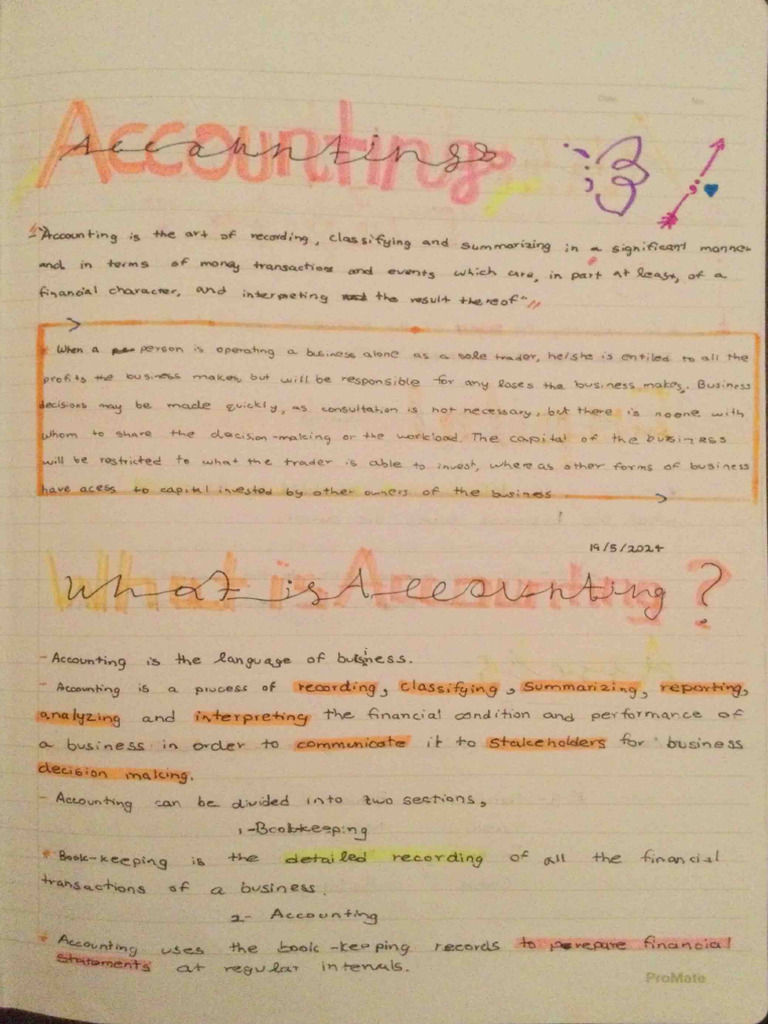 Accounting
"Accounting is the art of recording, classifying and summarizing in a significant manner
and in terms of money transactions and events which are, in part at least, of a
financial character, and interpreting the result thereof"
When a person is operating a business alone as a sole trader, he/she is entiled to all the
profits the business makes, but will be responsible for any loses the business makes. Business
decisions may be made quickly, as consultation is not necessary, but there is noone with
whom to share the decision-making or the workload. The capital of the business
will be restricted to what the trader is able to invest, where as other forms of business
have acess to capital invested by other owners of the business
19/5/2024
What is Accounting ?
- Accounting is the language of business.
- Accounting is a process of recording, classifying, summarizing, reporting,
analyzing and interpreting the financial condition and performance of
a business in order to communicate it to stakeholders for business
decision making.
- Accounting can be divided into two sections,
1-Bookkeeping
* Book-keeping is the detailed recording of all the financial
transactions of a business.
2- Accounting
* Accounting uses the book-keeping records to perepare financial
statements at regular intervals.
ProMate